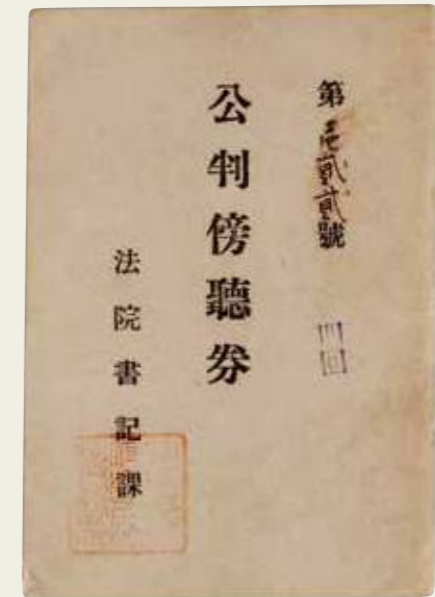 第壱貳貳號
公判傍聽券
法院書記課